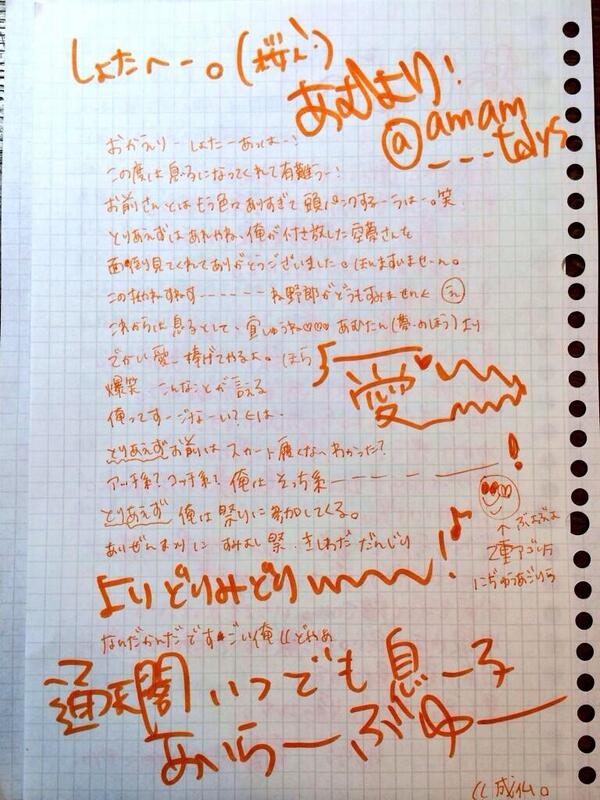 しょたへー。(桜ん!)
あむより!
@amam
_ _ _ talys
おかえりーしょたーあっはー!
この度は息子になってくれて有難うー!
お前さんとはもう色々ありすぎて頭パンクするーうはー。笑
とりあえずはあれやね、俺が付き放した
面倒見てくれてありがとうございました。ほんますいませーん。
野郎がどうもすみません
これからは息子として、宜しゅうね♡♡♡ あむたん(夢のほう)より
でかい愛、捧げてやるよ。ほら
愛
爆笑 こんなことが言える
俺ってすーごなーい?とは。
とりあえずお前はスカート履くな わかった?
アッチ系?コッチ系?俺はそっち系ー
とりあえず 俺は祭りに参加してくる。
すみよし祭、きしわだ だんじり
よりどりみどり
!♪
↑ ぶよぶよ
2重アゴリラ
にじゅうあごりら
なんだかんだですーごい俺 どやあ
通天閣 いつでも息ー子
あいらーぶゆー